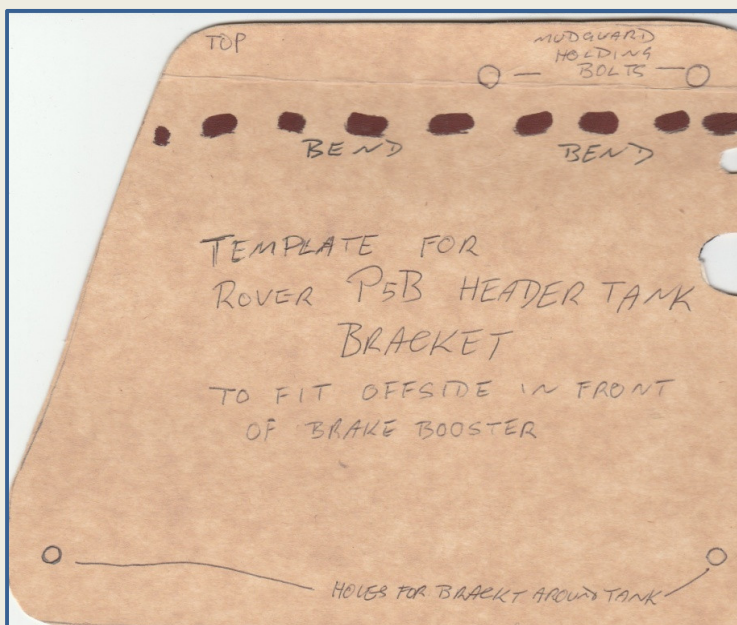 TOP
MUDGUARD
HOLDING
BOLTS
BEND BEND
TEMPLATE FOR
ROVER P5B HEADER TANK
BRACKET
TO FIT OFFSIDE IN FRONT
OF BRAKE BOOSTER
HOLES FOR BRACKT AROUND TANK